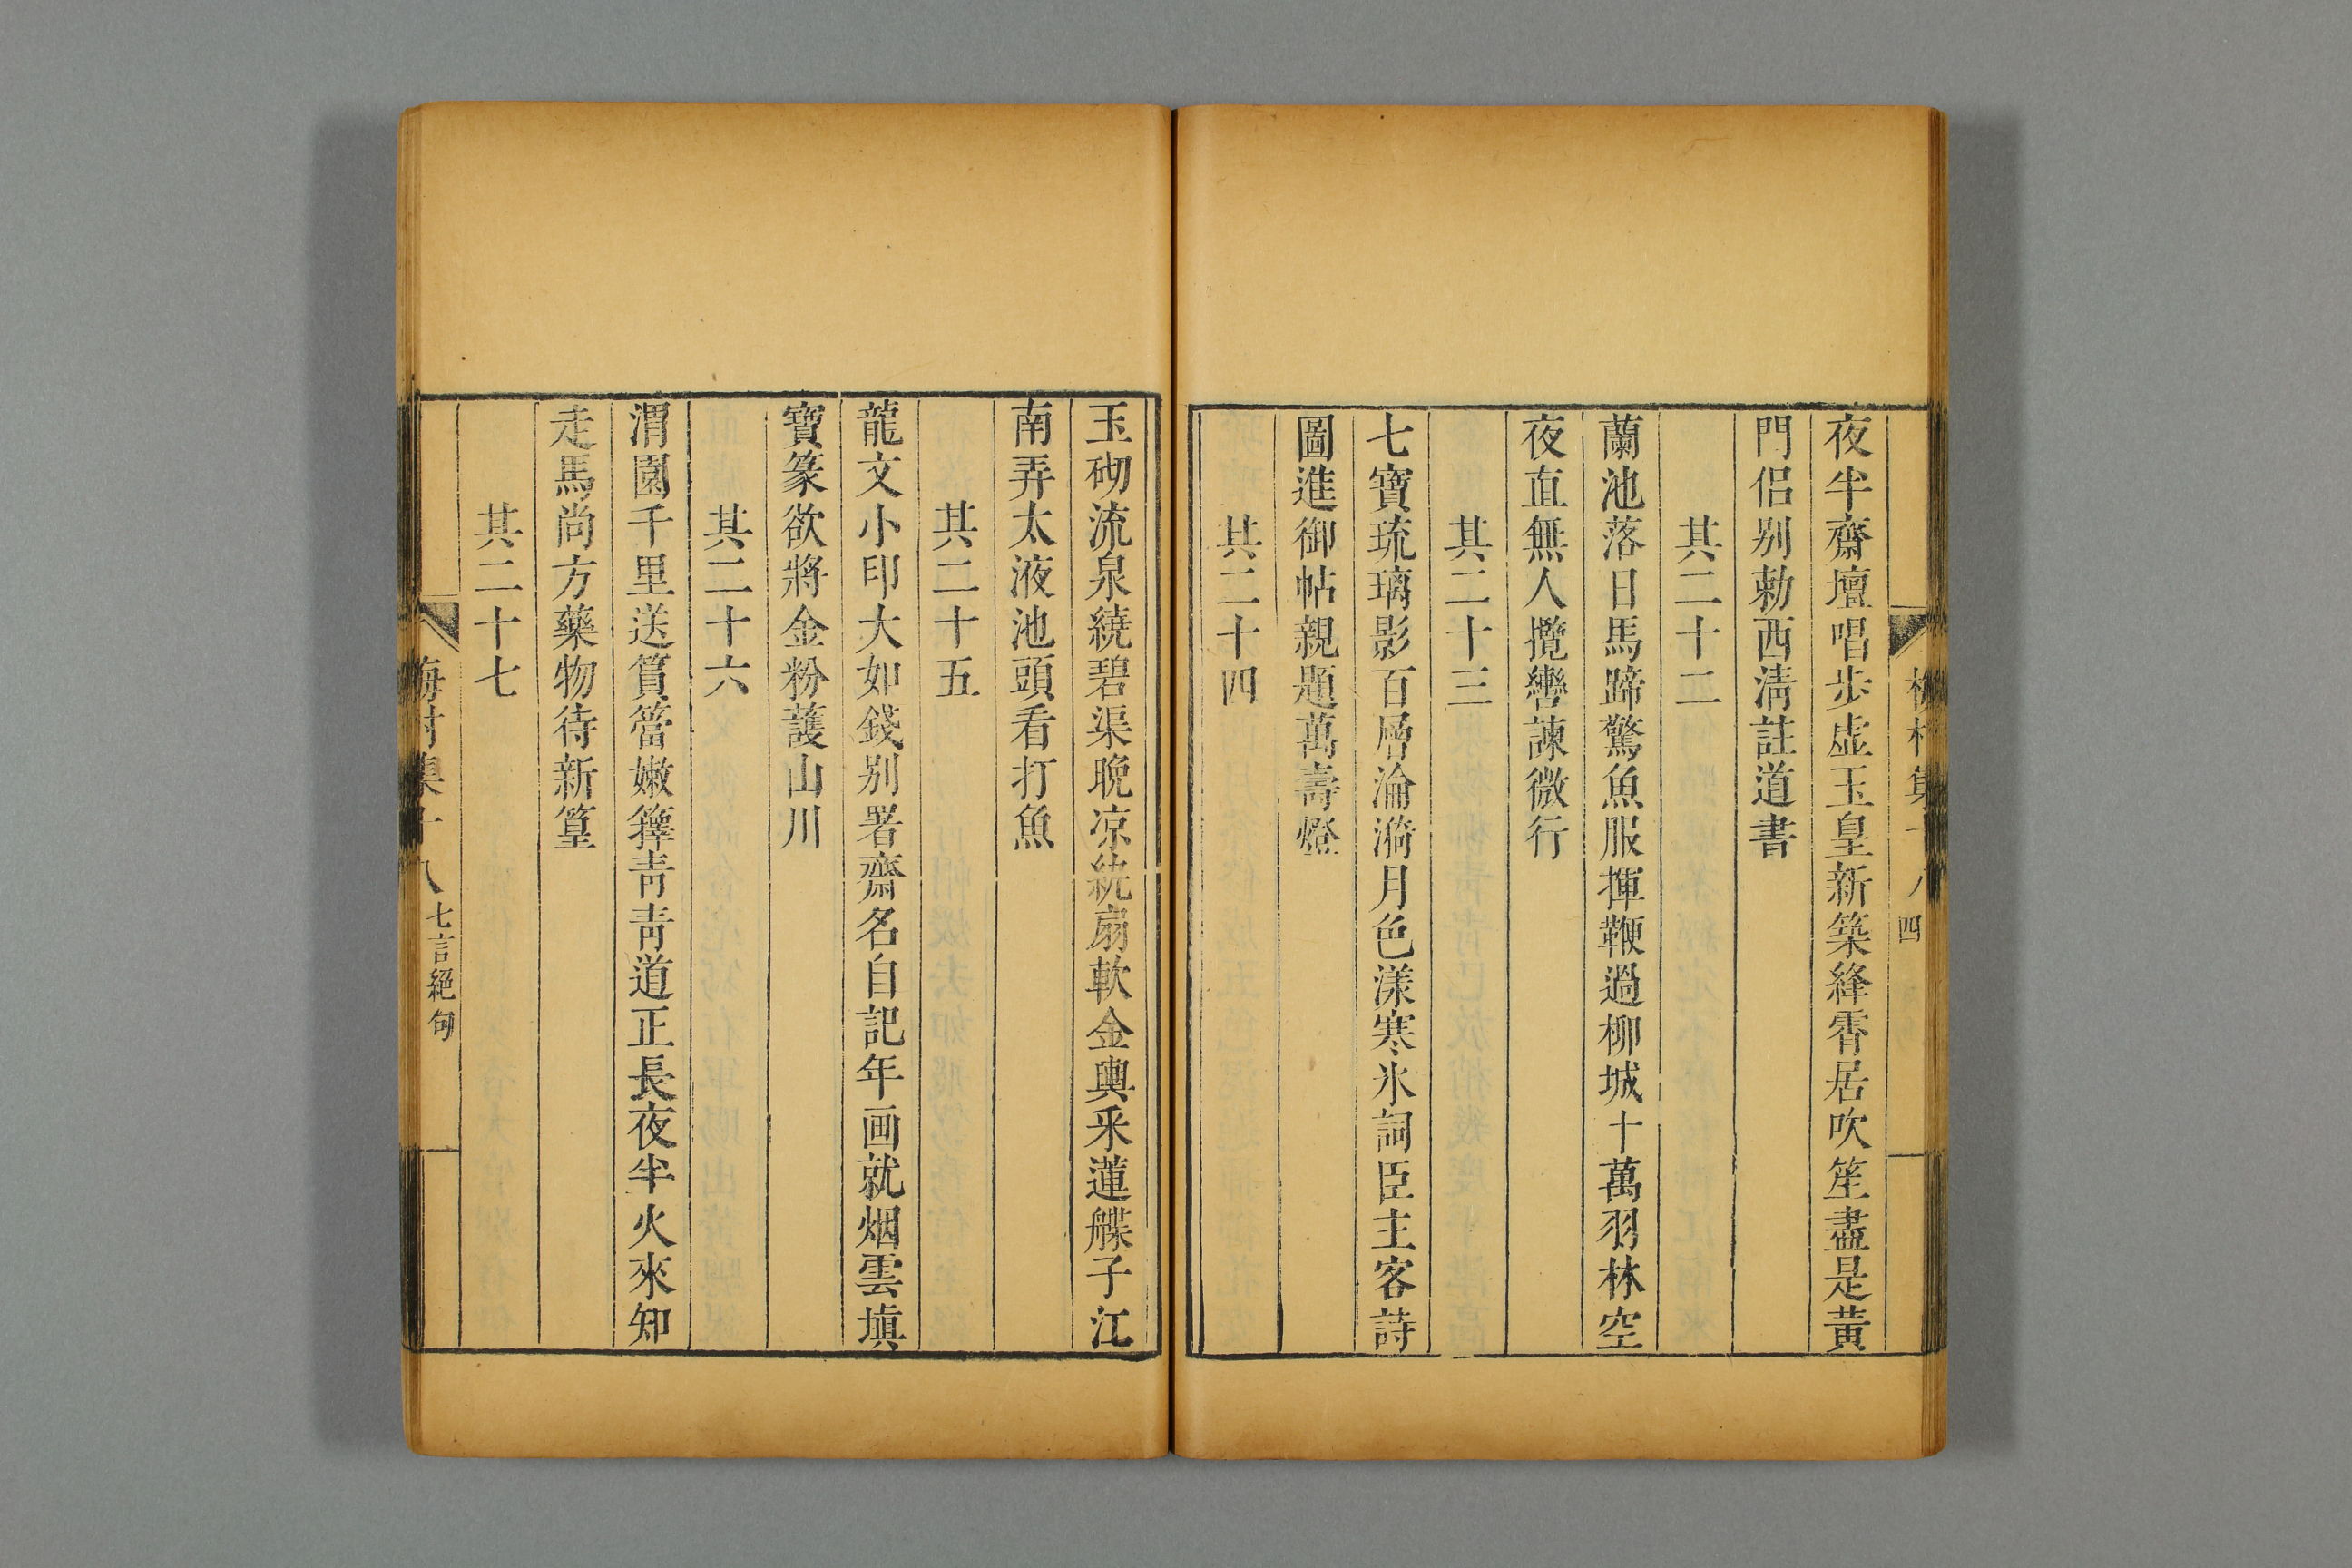 夜半齋壇唱步虚玉皇新築絳霄居吹笙盡是黃
門侣别勅西清註道書
其二十二
蘭池落日馬蹄驚魚服揮鞭過柳城十萬羽林空
夜直無人攬轡諫微行
其二十三
七寶琉璃影百層淪漪月色漾寒氷詞臣主客詩
圖進御帖親題萬壽燈
其二十四
四
玉砌流泉繞碧渠晚凉紈扇軟金輿采蓮艓子江
南弄太液池頭看打魚
其二十五
龍文小印大如錢别署齋名自記年画就烟雲塡
寶篆欲將金粉護山川
其二十六
渭園千里送篔簹嫩籜青青道正長夜半火來知
走馬尚方藥物待新篁
其二十七
梅村集十八 七言絕句